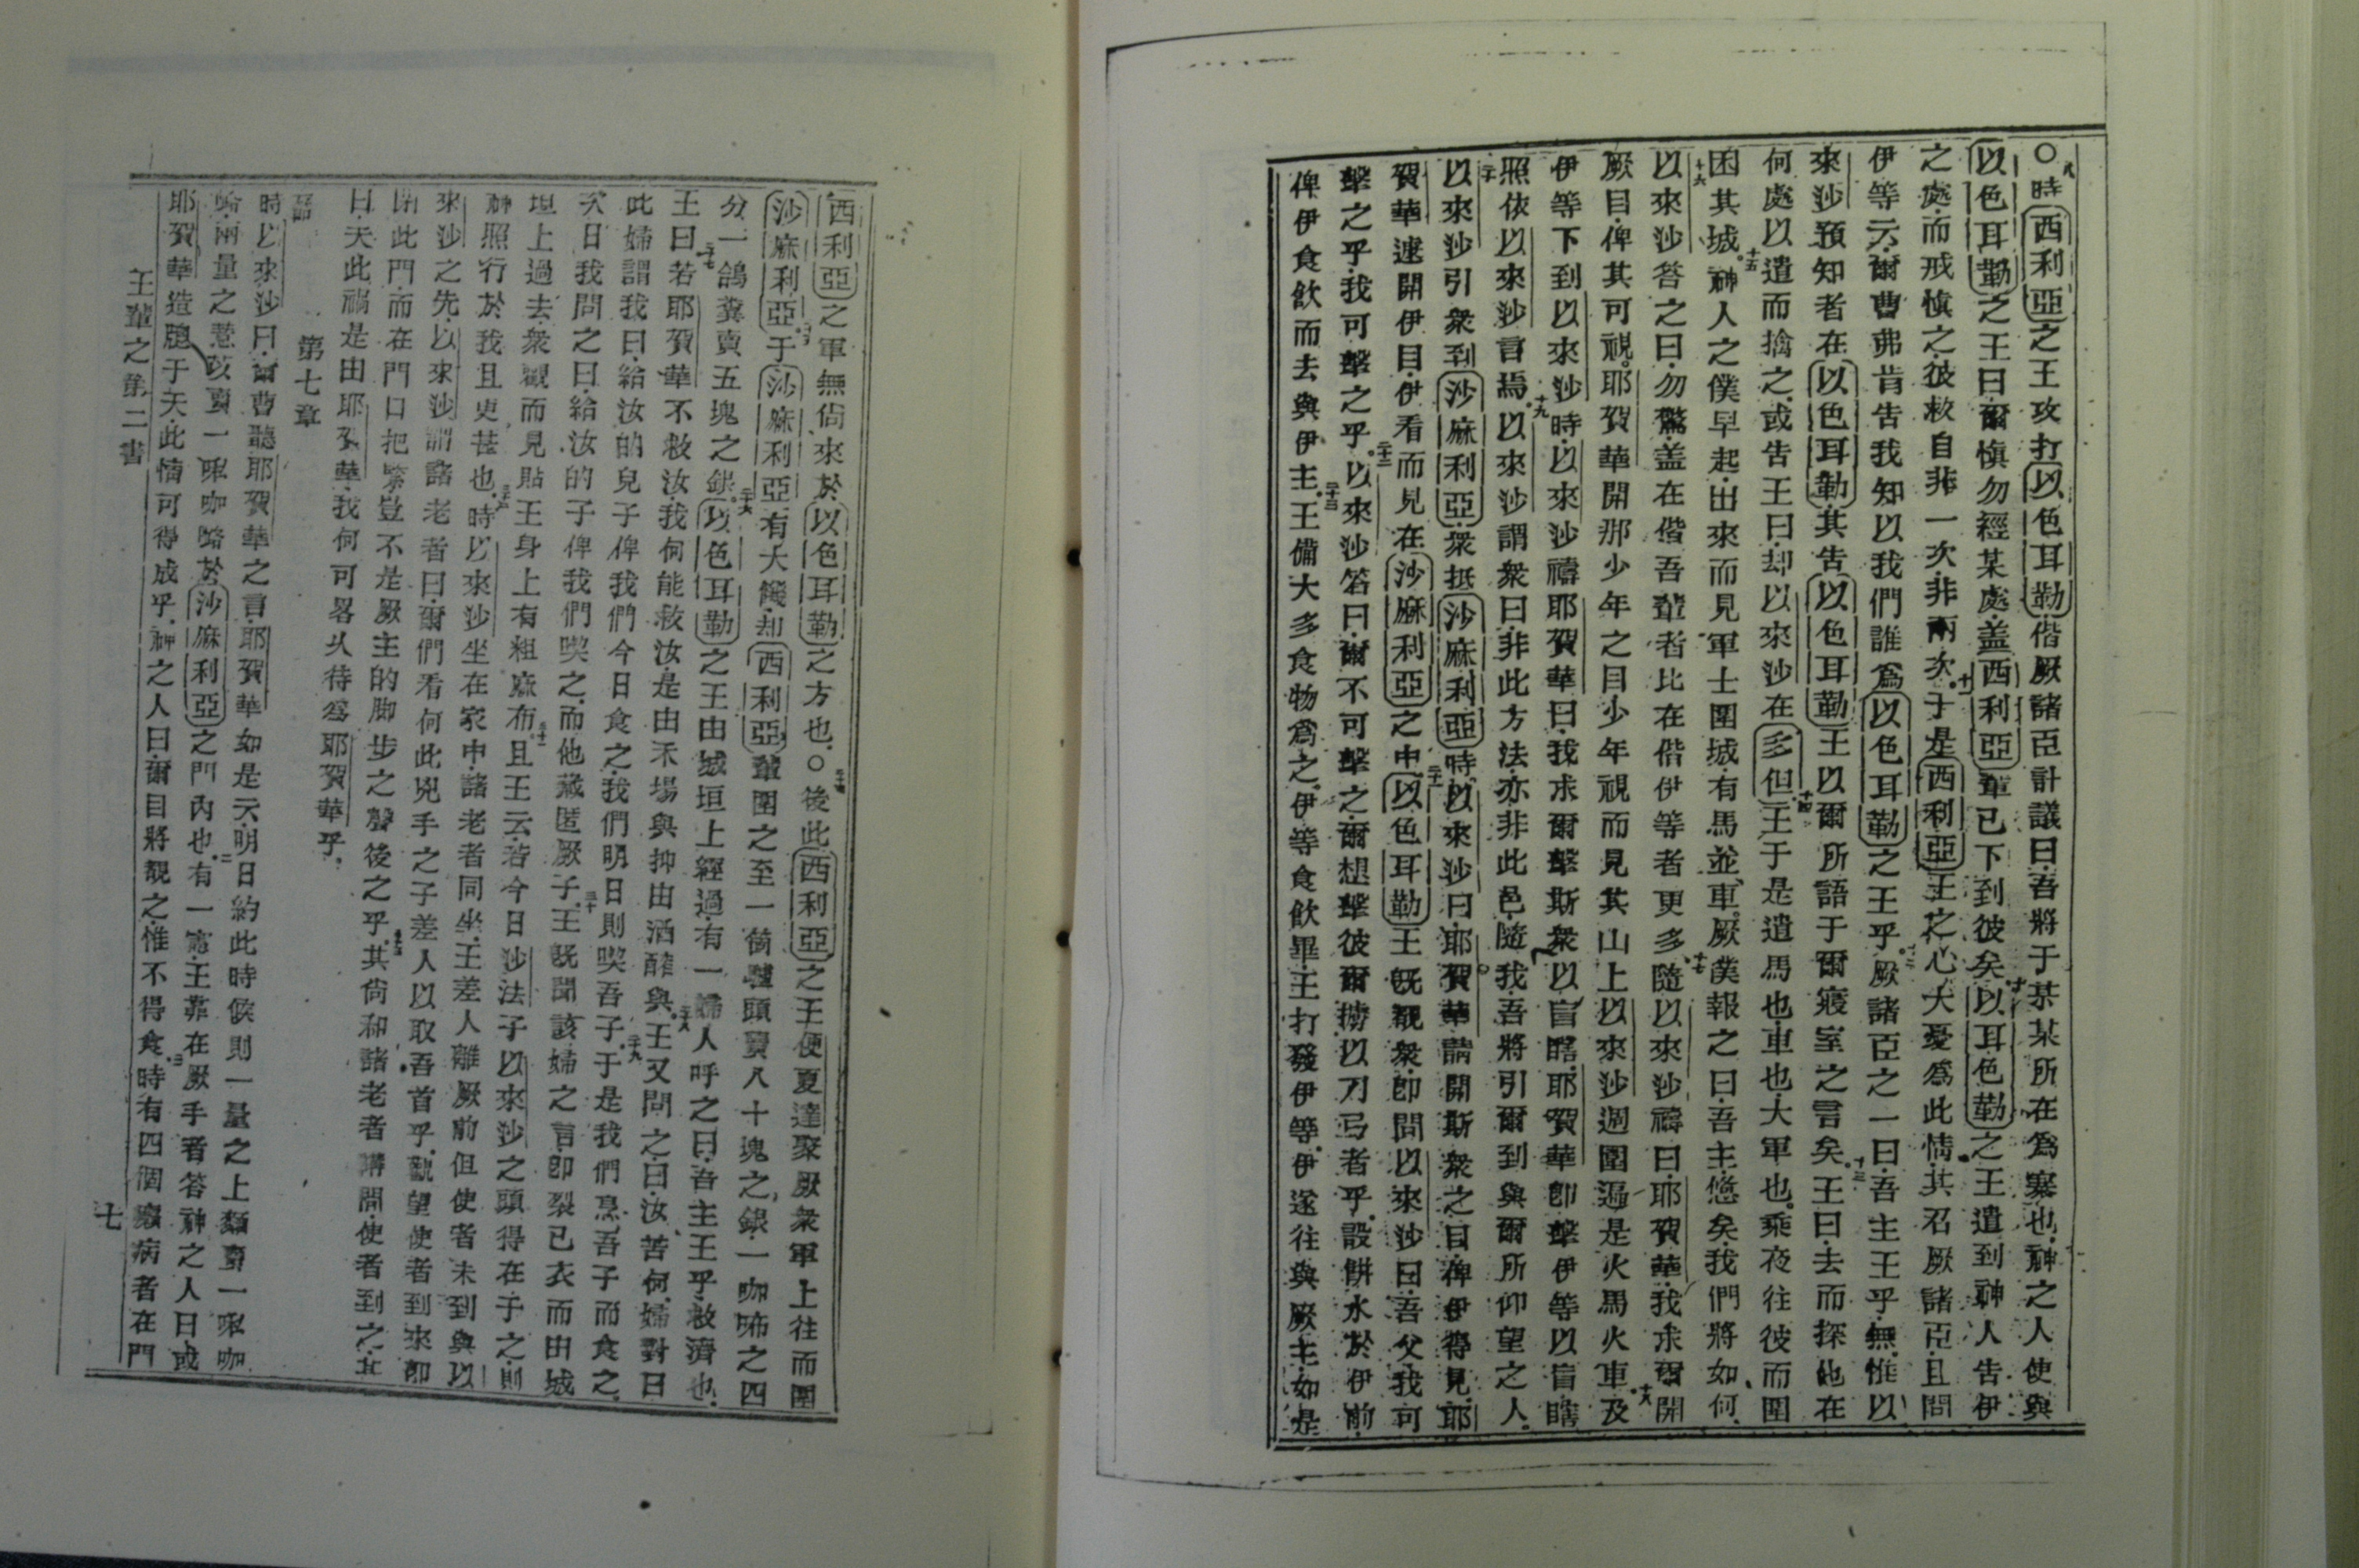 ○時西利亞之王攻打以色耳勒偕厥諸臣計議曰吾將于某某所在爲寨也神之人使與
以色耳勒之王曰爾愼勿經某處盖西利亞輩已下到彼矣以耳色勒之王遣到神人告伊
之處而戒愼之彼救自非一次非兩次于是西利亞王之心大憂爲此情其召厥諸臣且問
伊等云爾曹弗肯告我知以我們誰爲以色耳勒之王乎厥諸臣之一曰吾主王乎無惟以
來沙預知者在以色耳勒其告以色耳勒王以爾所語于爾寢室之言矣王曰去而探他在
何處以遣而擒之或告王曰却以來沙在多但王于是遣馬也車也大軍也乘夜往彼而圍
困其城神人之僕早起出來而見軍士圍城有馬並車厥僕報之曰吾主悠矣我們將如何
以來沙答之曰勿驚盖在偕吾輩者比在偕伊等者更多隨以來沙禱曰耶賀華我求爾開
厥目俾其可視耶賀華開那少年之目少年視而見其山上以來沙週圍遍是火馬火車及
伊等下到以來沙時以來沙禱耶賀華曰我求爾擊斯衆以盲瞎耶賀華卽擊伊等以盲瞎
照依以來沙言焉以來沙謂衆曰非此方法亦非此邑隨我吾將引爾到與爾所仰望之人
以來沙引衆到沙麻利亞衆抵沙麻利亞時以來沙曰耶賀華請開斯衆之目俾伊得見耶
賀華遂開伊目伊看而見在沙麻利亞之中以色耳勒王旣覩衆卽問以來沙曰吾父我可
擊之乎我可擊之乎以來沙答曰爾不可擊之爾想擊彼爾擄以刀弓者乎設餅水於伊前
俾伊食飲而去與伊主王備大多食物爲之伊等食飲畢王打發伊等伊遂往與厥主如是
西利亞之軍無尙來於以色耳勒之方也○後此西利亞之王便夏達聚厥衆軍上往而圍
沙麻利亞于沙麻利亞有大饑却西利亞輩圍之至一箇驢頭賣八十塊之銀一咖㗑之四
分一鴿糞賣五塊之銀以色耳勒之王由城垣上經過有一婦人呼之曰吾主王乎救濟也
王曰若耶賀華不救汝我何能救汝是由禾場與抑由酒醡與王又問之曰汝苦何婦對曰
此婦謂我曰給汝的兒子俾我們今日食之我們明日則喫吾子于是我們烹吾子而食之
次日我問之曰給汝的子俾我們喫之而他藏匿厥子王旣聞該婦之言卽裂已衣而由城
垣上過去衆觀而見貼王身上有粗麻布且王云若今日沙法子以來沙之頭得在于之則
神照行於我且更甚也時以來沙坐在家中諸老者同坐王差人離厥前但使者未到與以
來沙之先以來沙謂諸老者曰爾們看何此兇手之子差人以取吾首乎觀望使者到來卽
閉此門而在門口把緊豈不是厥主的脚步之聲後之乎其尙和諸老者講間使者到之且
曰天此禍是由耶賀華我何可畧久待爲耶賀華乎
第七章
時以來沙曰爾曹聽耶賀華之言耶賀華如是云明日約此時候則一量之上麵賣一㖠咖
㗉兩量之薏苡賣一㖠咖㗉於沙麻利亞之門內也有一憲王靠在厥手者答神之人曰或
耶賀華造牕于天此情可得成乎神之人曰爾目將覩之惟不得食時有四個癩病者在門
王輩之第二書
七